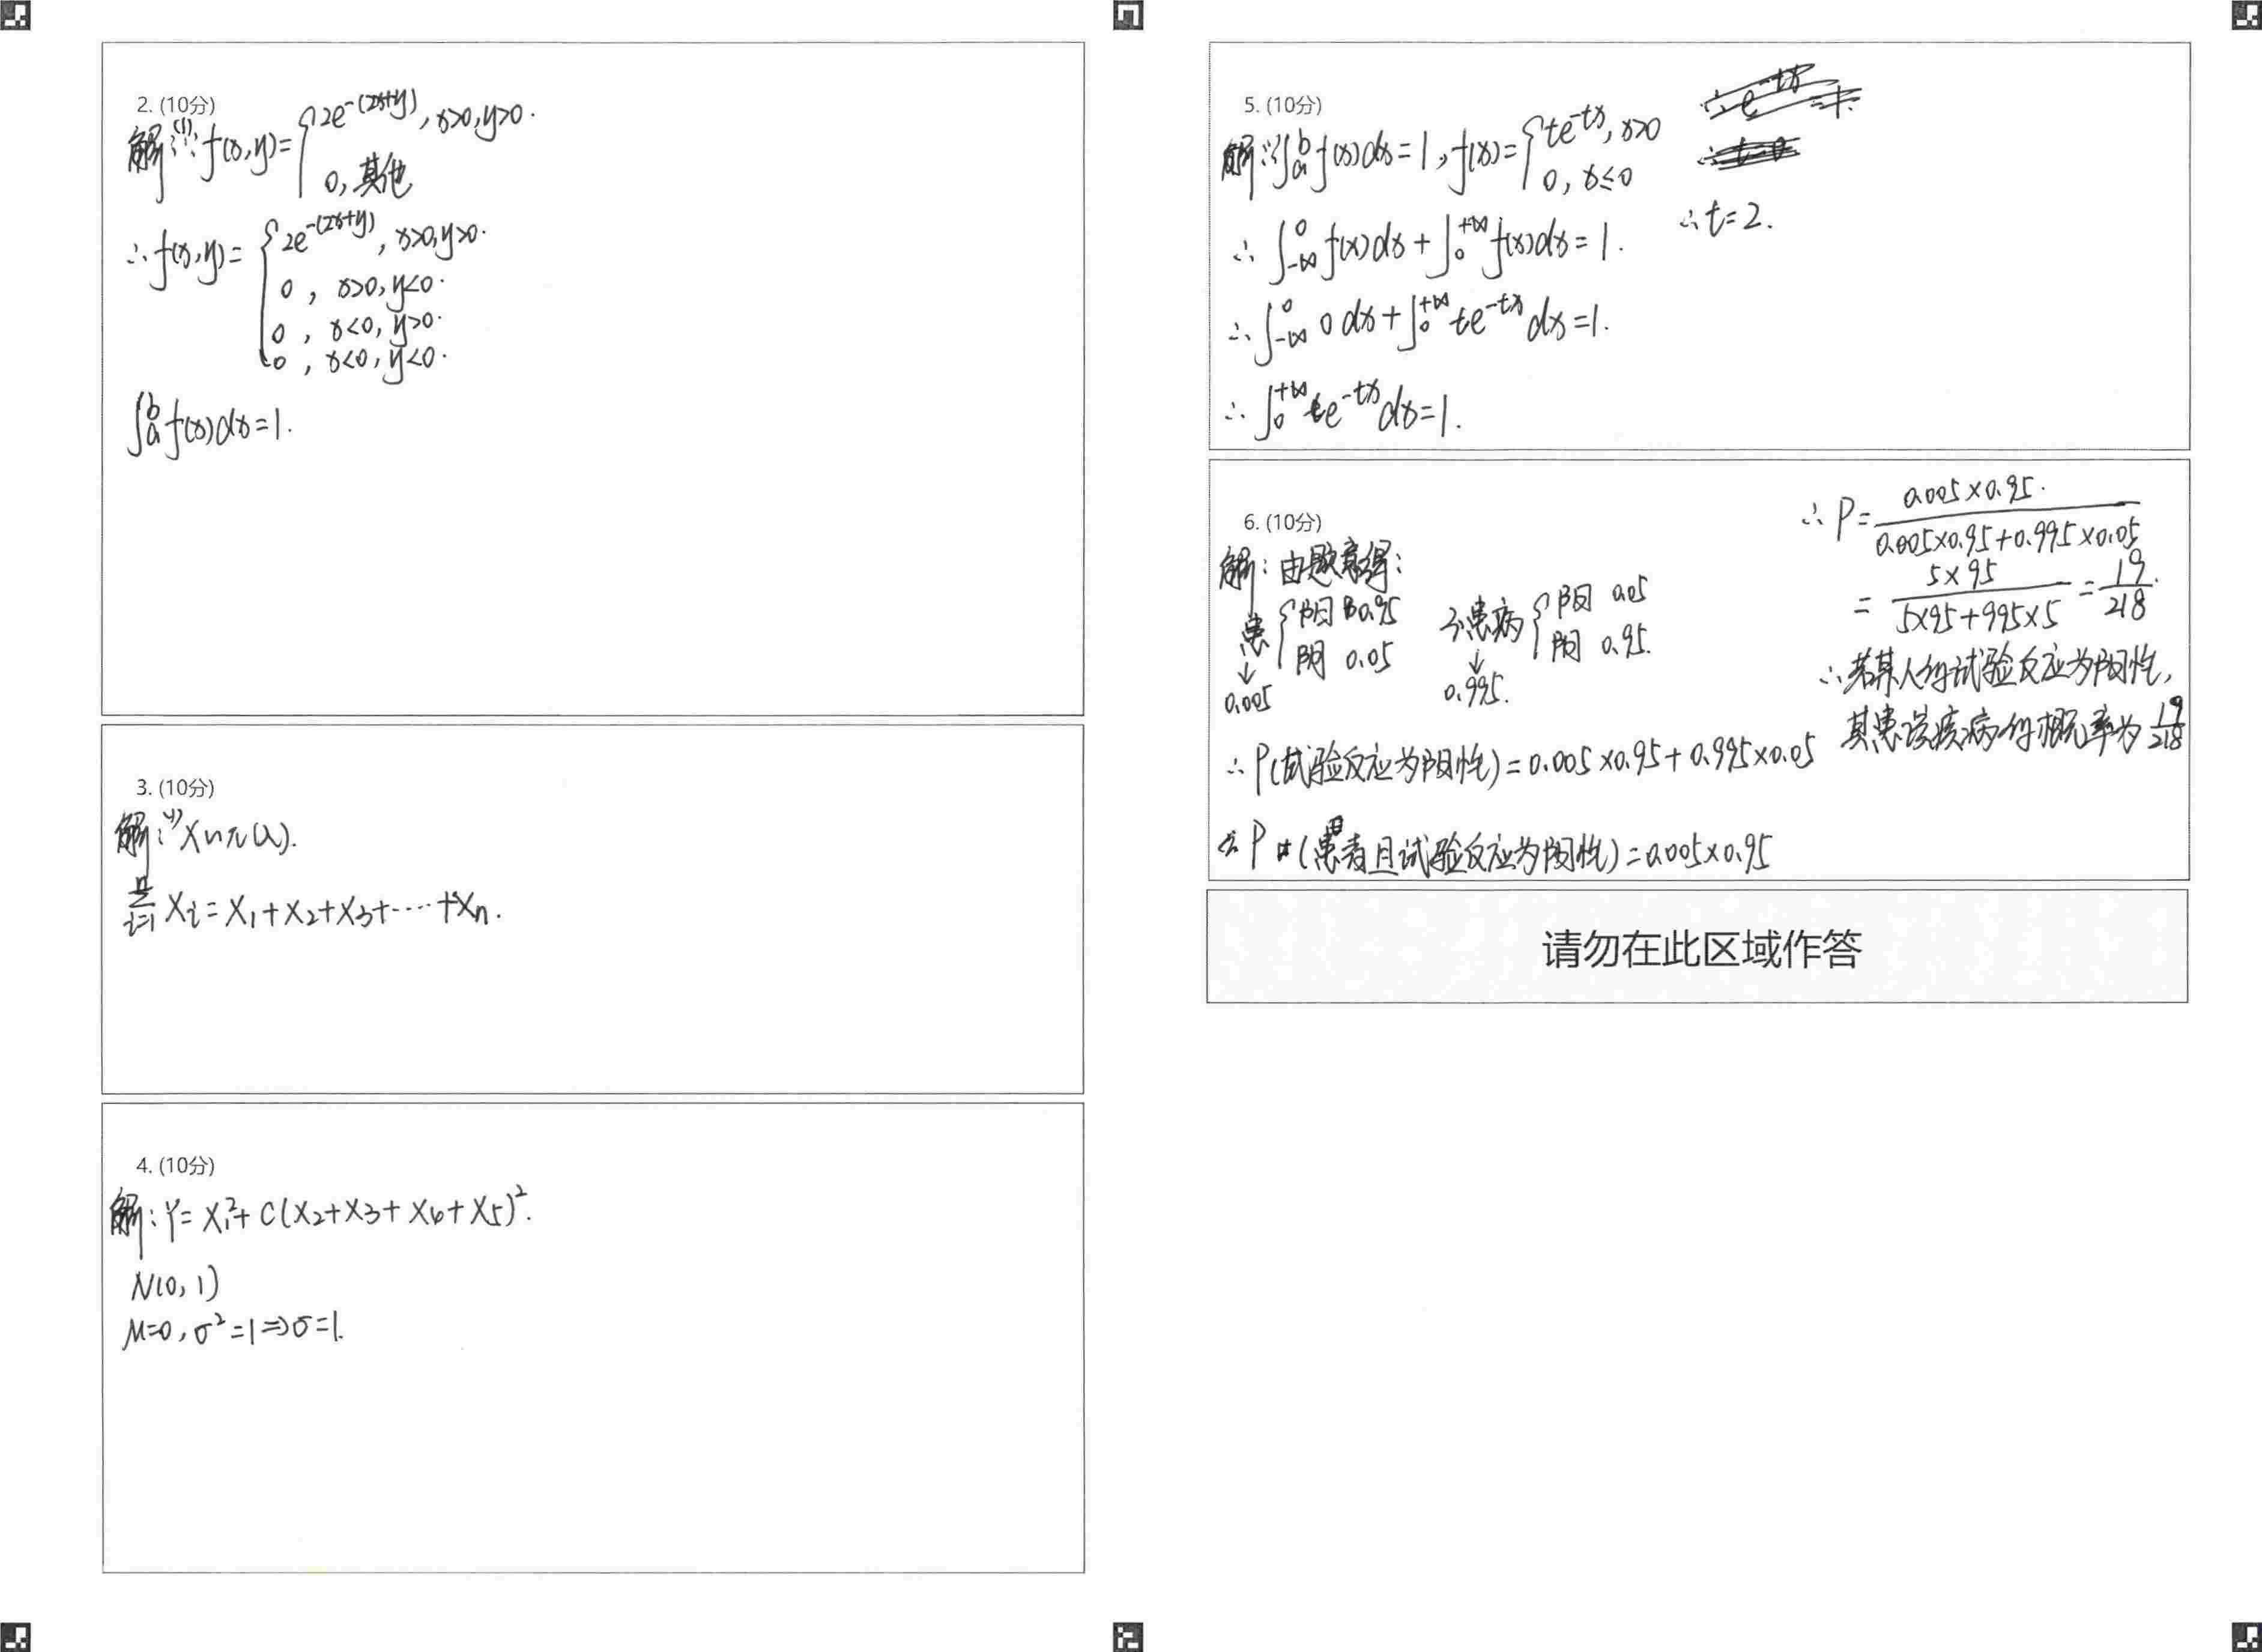 2. (10分)
解(1)∵f(x,y)={2e^-(2x+y), x>0,y>0.
0, 其他
∴f(x,y)={2e^-(2x+y), x>0,y>0.
0, x>0,y<0.
0, x<0,y>0.
0, x<0,y<0.
∫_a^b f(x)dx=1.
3. (10分)
解:(1)X~π(λ).
Σ_{i=1}^n Xi=X1+X2+X3+····+Xn.
4. (10分)
解:Y=X1²+C(X2+X3+X4+X5)².
N(0,1)
M=0,σ²=1⇒σ=1.
5. (10分)
解:∵∫_a^b f(x)dx=1,f(x)={te^-tx, x>0
0, x≤0
∴∫_{-∞}^0 f(x)dx+∫_0^{+∞} f(x)dx=1.
∴∫_{-∞}^0 0dx+∫_0^{+∞} te^-tx dx=1.
∴∫_0^{+∞} te^-tx dx=1.
∴t=2.
6. (10分)
解:由题意得:
患{阳 0.95
阴 0.05
↓
0.005
不患病{阳 0.05
阴 0.95.
↓
0.995.
∴P(试验反应为阳性)=0.005×0.95+0.995×0.05
∴P(患者且试验反应为阳性)=0.005×0.95
∴P=0.005×0.95./0.005×0.95+0.995×0.05
=5×95/5×95+995×5=19/218.
∴若某人的试验反应为阳性,
其患该疾病的概率为19/218
请勿在此区域作答